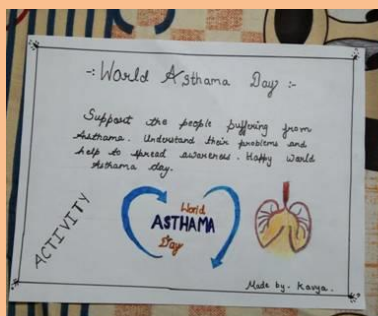 -: World Asthama Day :-
Support the people suffering from
Asthama. Understand their problems and
help to spread awareness. Happy World
Asthama day.
ACTIVITY
World
ASTHAMA
Day
Made by. Kavya.